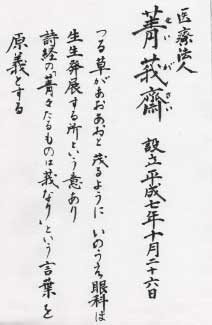 医療法人
菁莪齋 設立平成七年十月二十六日
せいがさい
つる草があおあおと茂るように いのうえ眼科は
生生発展する所という意あり
詩経の菁々たるものは莪なり、という言葉を
原義とする